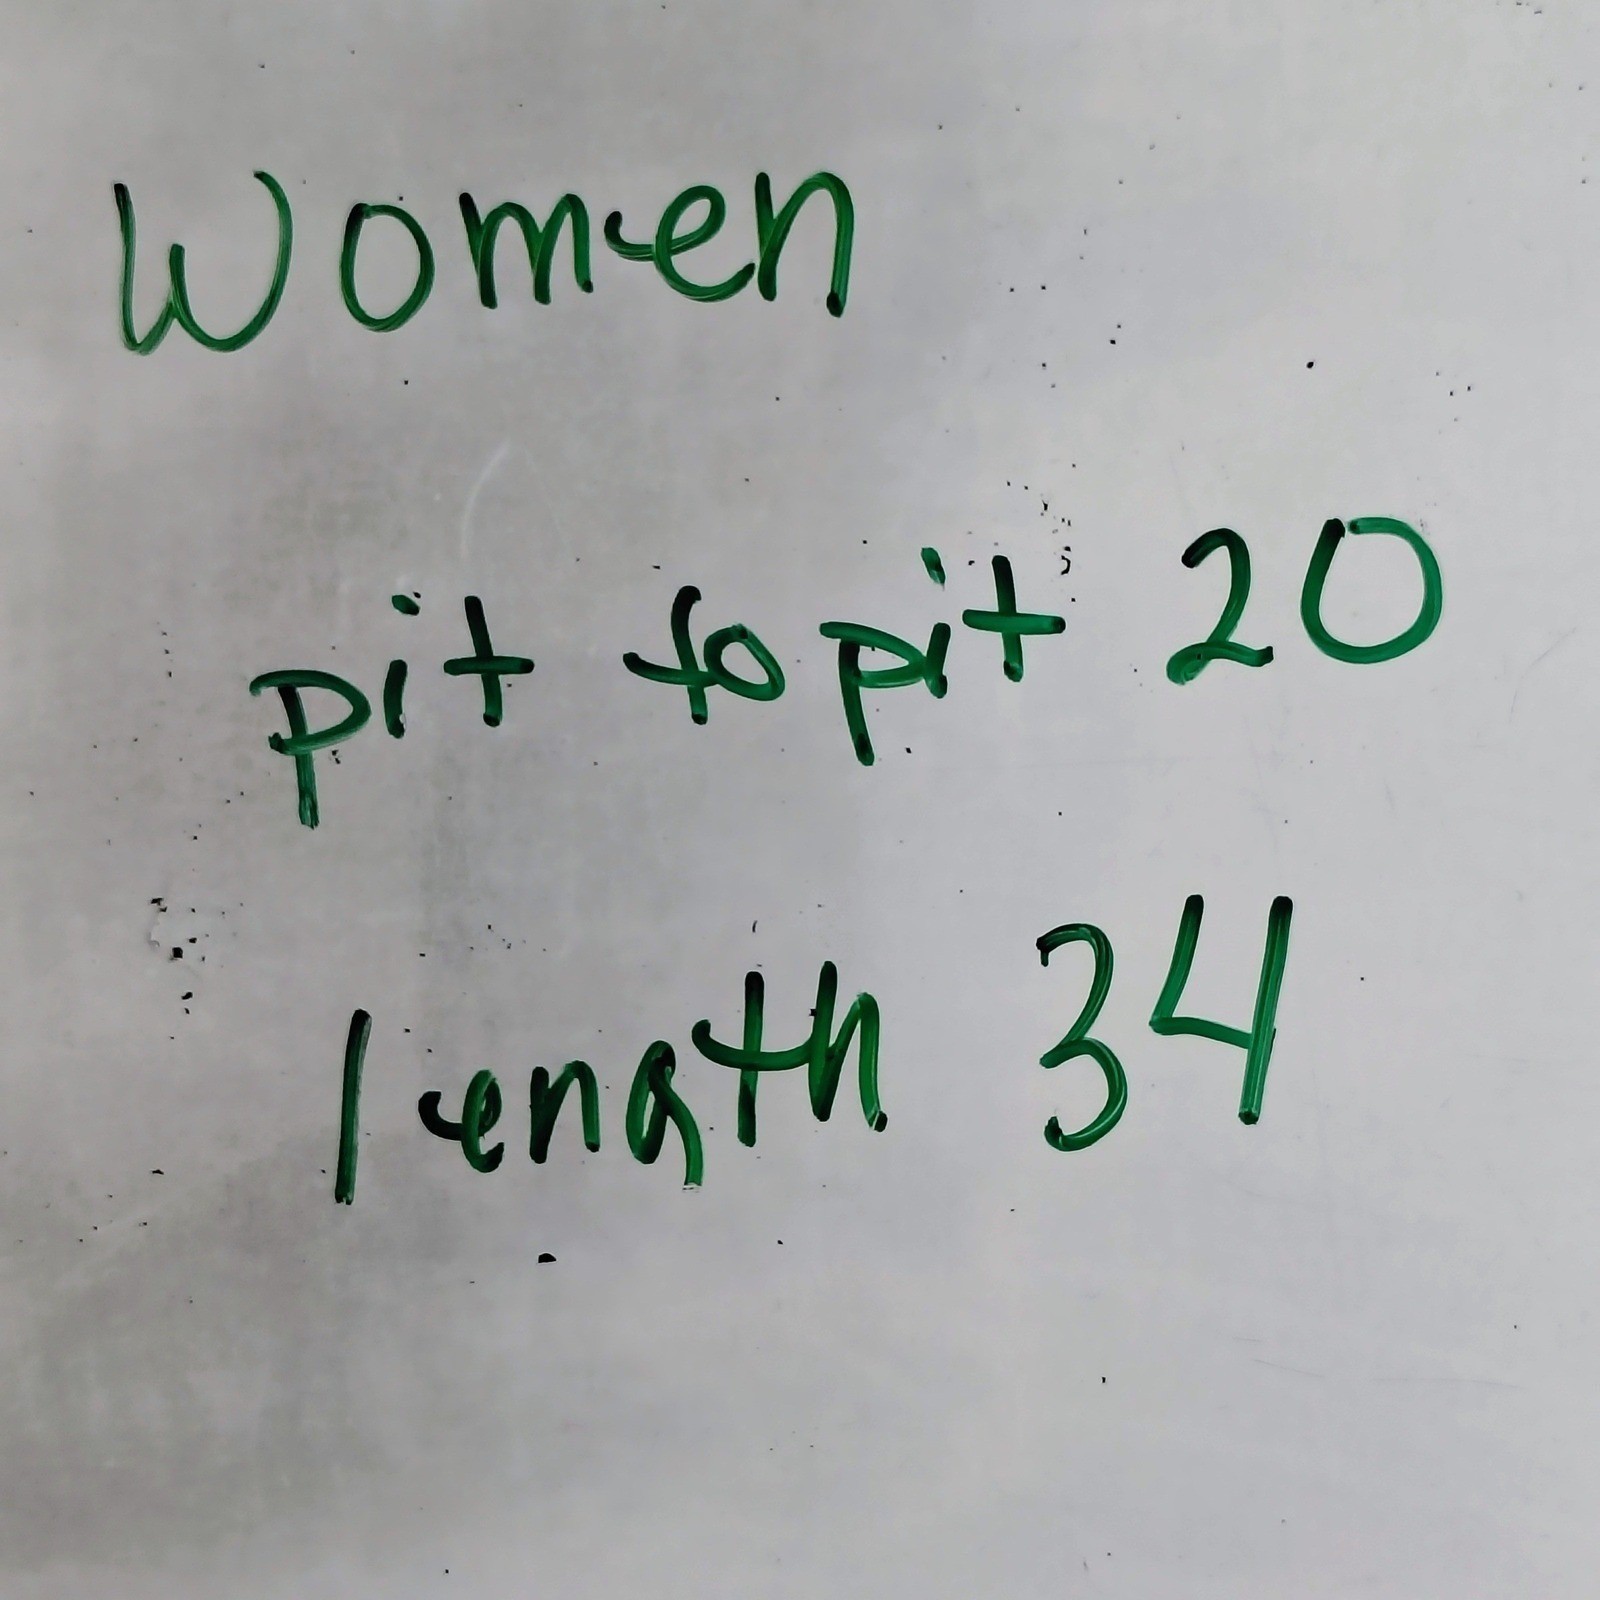 Women
pit to pit 20
length 34